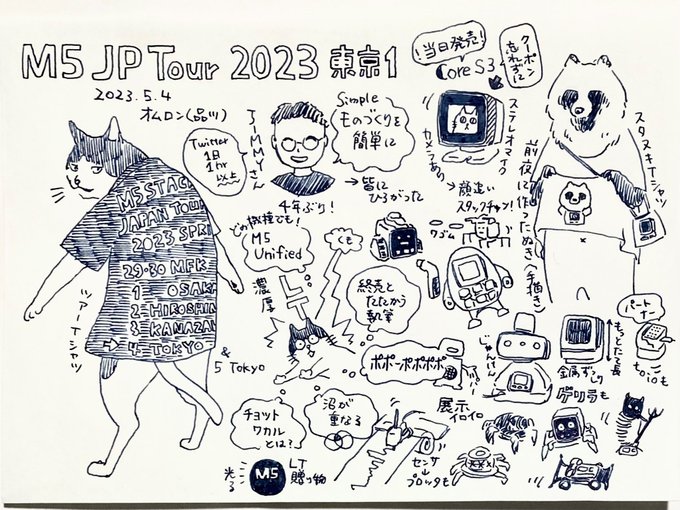 M5 JP Tour 2023 東京1
2023.5.4
オムロン(品川)
当日発売!
クーポン
忘れずに
Core S3
ステレオマイク
カメラあり
顔追い
スタックチャン!
スタヌキTシャツ
前夜に作ったたぬき(手描き)
Twitter
1日
1hr
以上
JIMMYさん
Simple
ものづくりを
簡単に
→皆に
ひろがった
4年ぶり!
どの機種でも!
M5
Unified
濃厚
LT
くも
終売と
たたかう
執筆
ワゴム
M5STACK
JAPAN TOUR
2023 SPRI
29-30 MFK
1 OSAKA
2 HIROSHIM
3 KANAZAW
4 TOKYO
& 
5 Tokyo
ツアーTシャツ
ポポーンポポポポ
じゃんけん
展示
イロイロ
もっとたて長
金属ずっしり
ゲリラも
パート
ナー
toioも
チョット
ワカル
とは?
沼が
重なる
センサ
プロッタも
光る
M5
LT
贈り物